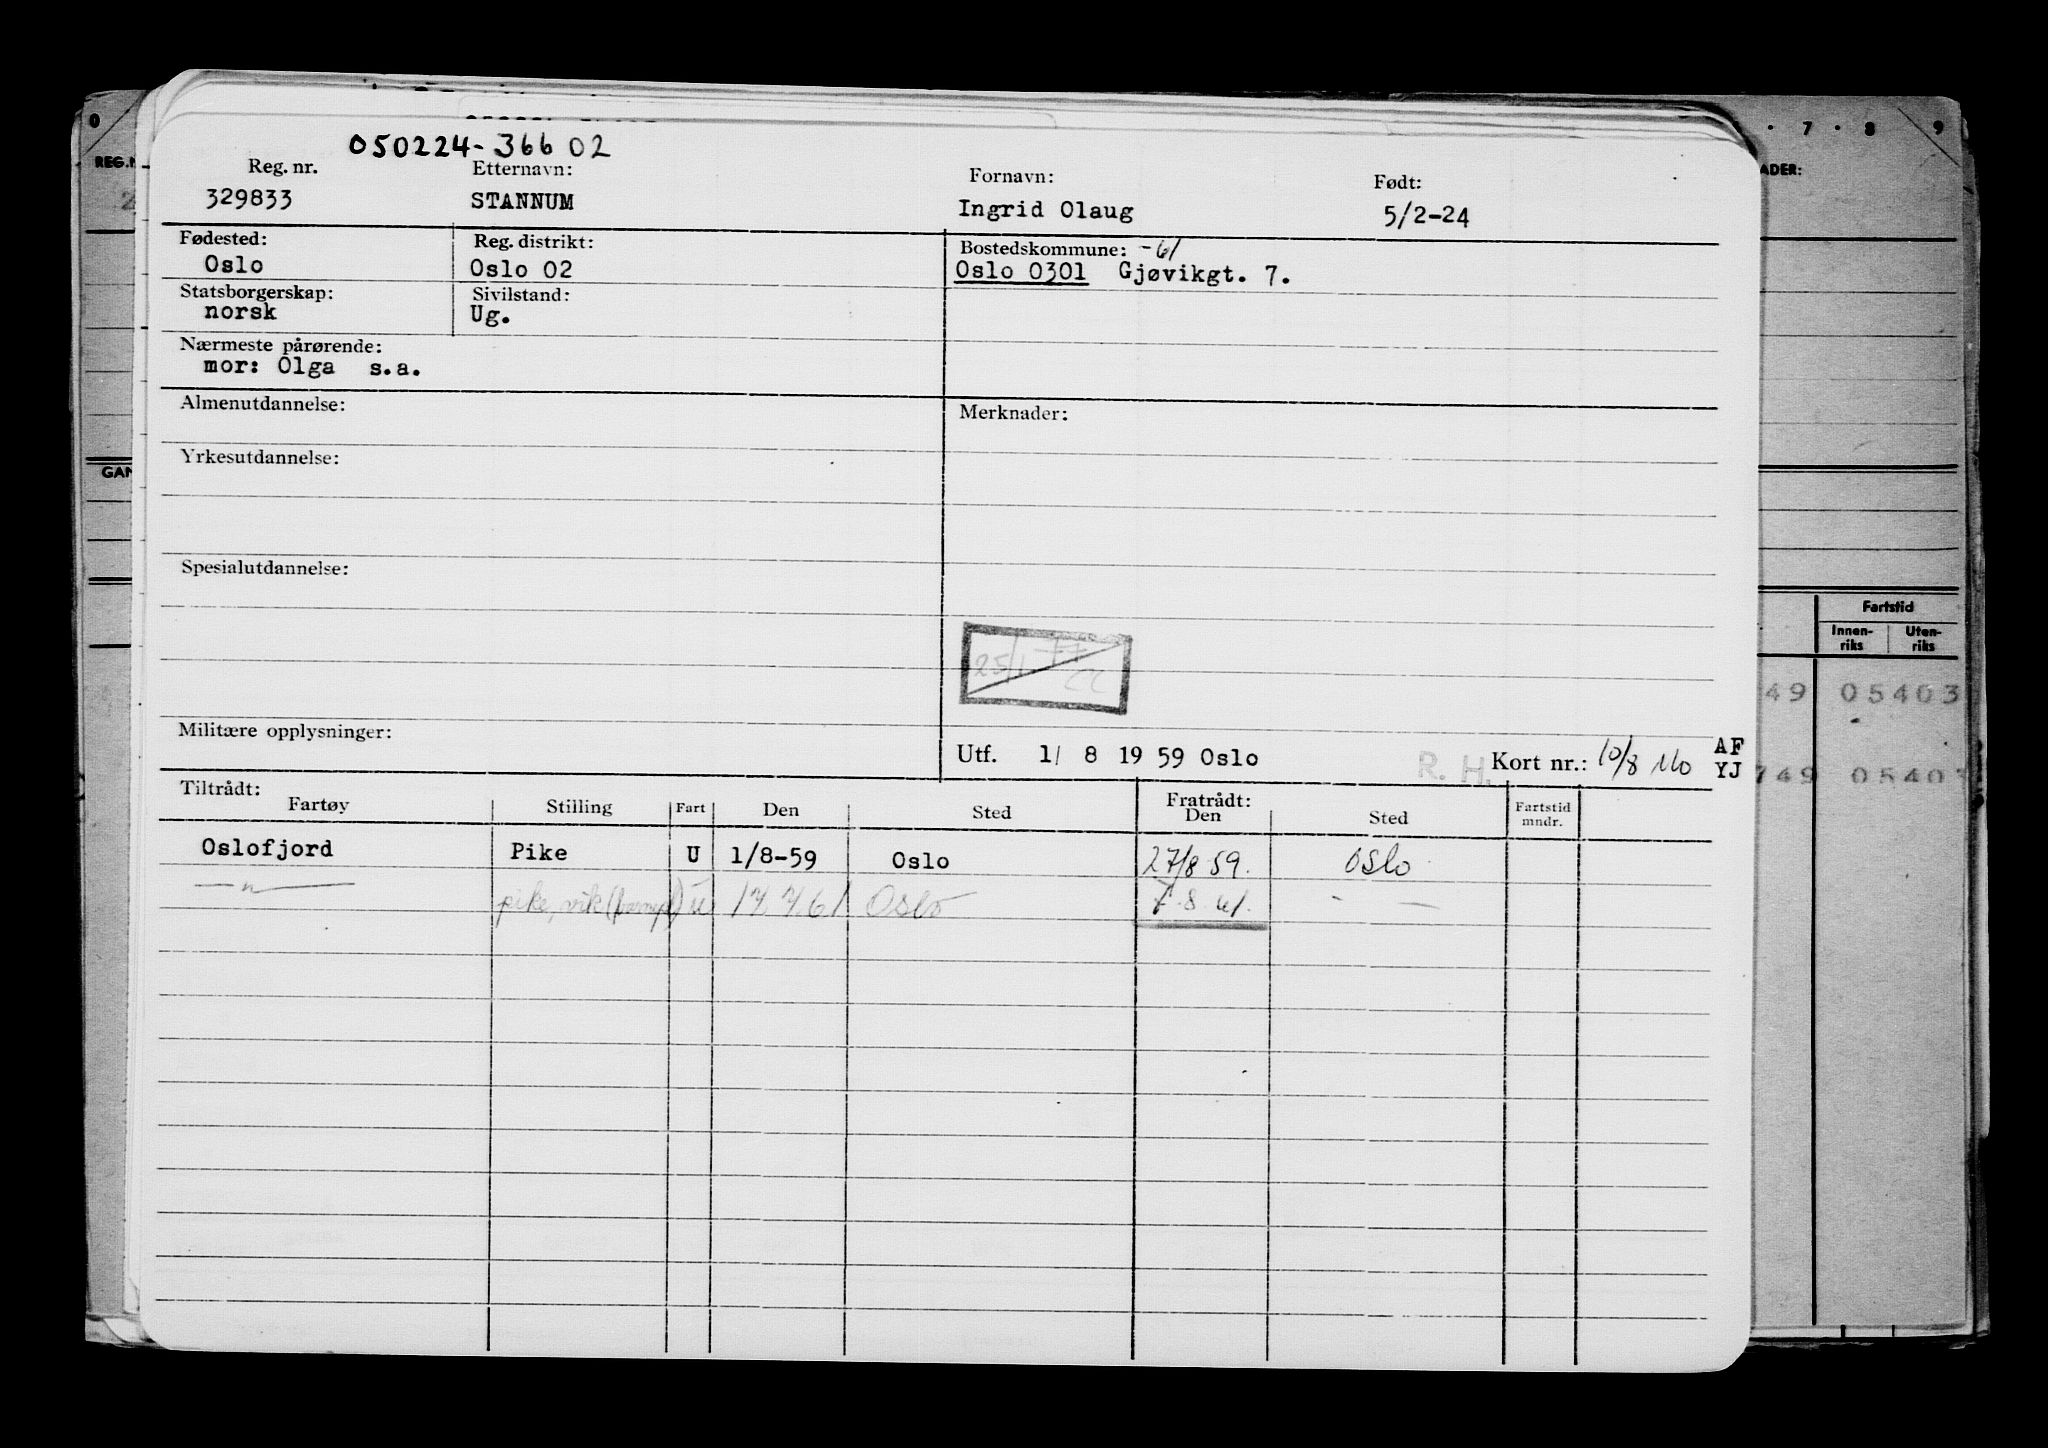 050224-36602
Reg. nr. Etternavn: Fornavn: Født:
329833 STANNUM Ingrid Olaug 5/2-24
Fødested: Reg. distrikt: Bostedskommune: -61
Oslo Oslo 02 Oslo 0301 Gjøvikgt. 7.
Statsborgerskap: Sivilstand:
norsk Ug.
Nærmeste pårørende:
mor: Olga s.a.
Almenutdannelse: Merknader:
Yrkesutdannelse:
Spesialutdannelse:
25/1 77
Militære opplysninger:
Utf. 1/ 8 19 59 Oslo R. H. Kort nr.: 10/8 AF
YJ
Tiltrådt: Fratrådt:
Fartøy Stilling Fart Den Sted Den Sted Fartstid mndr.
Oslofjord Pike U 1/8-59 Oslo 27/8 59. Oslo
— " — pike, vik u 17 7 61 Oslo 7.8.61. - —
0 7 8 9
REG.N ADER:
2
GAN
Fartstid
Innen-riks Uten-riks
49 05403
749 05403